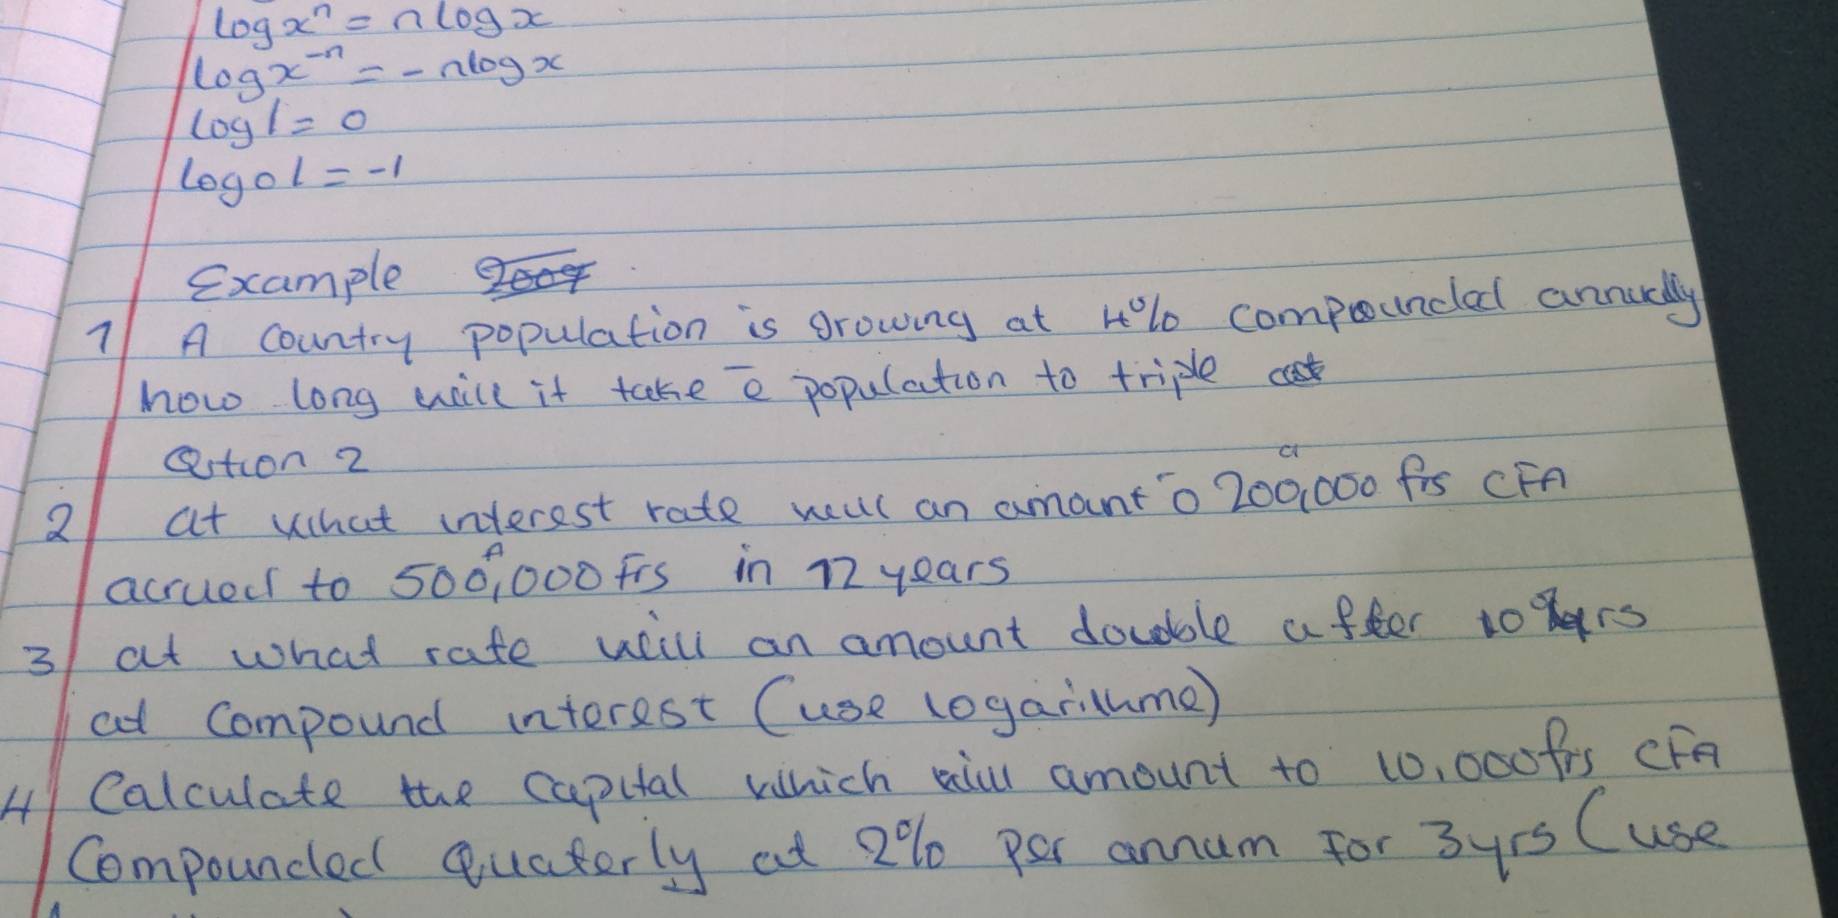 log xⁿ = n log x
log x⁻ⁿ = - n log x
log 1 = 0
log 0 1 = -1
Example 2007
1 A country population is growing at 4% compounded annually
how long will it take e population to triple
Qstion 2
2 at what interest rate will an amount o 200,000 frs CFA
acrued to 500,000 Frs in 12 years
3 at what rate will an amount double after 10 yrs
at compound interest (use logarithme)
4 Calculate the capital which will amount to 10,000 frs CFA
Compounded Quaterly at 2% per annum For 3 yrs (use